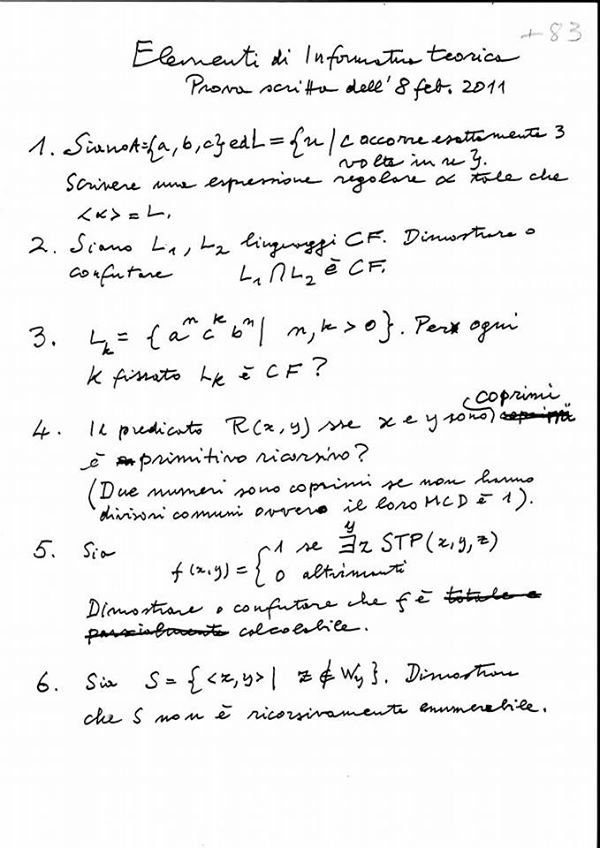 +83
Elementi di Informatica teorica
Prova scritta dell'8 feb. 2011
1. Siano A={a, b, c} ed L = {u | c occorre esattamente 3
volte in u }.
Scrivere una espressione regolare α tale che
<α> = L.
2. Siano L₁, L₂ linguaggi CF. Dimostrare o
confutare L₁ ∩ L₂ è CF.
3. Lₖ = { aⁿ cᵏ bⁿ | n, k > 0 }. Per ogni
k fissato Lₖ è CF ?
coprimi
4. Il predicato R(x, y) sse x e y sono
è primitivo ricorsivo?
(Due numeri sono coprimi se non hanno
divisori comuni ovvero il loro MCD è 1).
y
5. Sia f(x,y) = { 1 se ∃z STP(x, y, z)
0 altrimenti
Dimostrare o confutare che f è totale e
parzialmente calcolabile.
6. Sia S = { <z, y> | z ∉ Wy }. Dimostrare
che S non è ricorsivamente enumerabile.